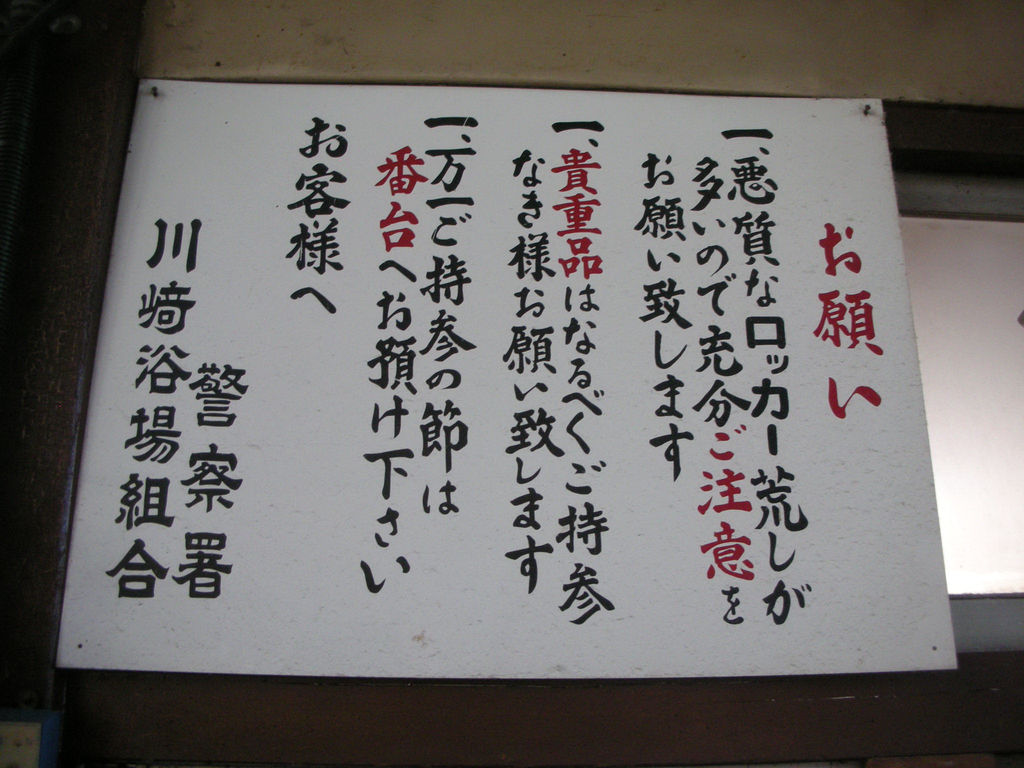 お願い
一、悪質なロッカー荒しが
多いので充分ご注意を
お願い致します
一、貴重品はなるべくご持参
なき様お願い致します
一、万一ご持参の節は
番台へお預け下さい
お客様へ
警察署
川崎浴場組合